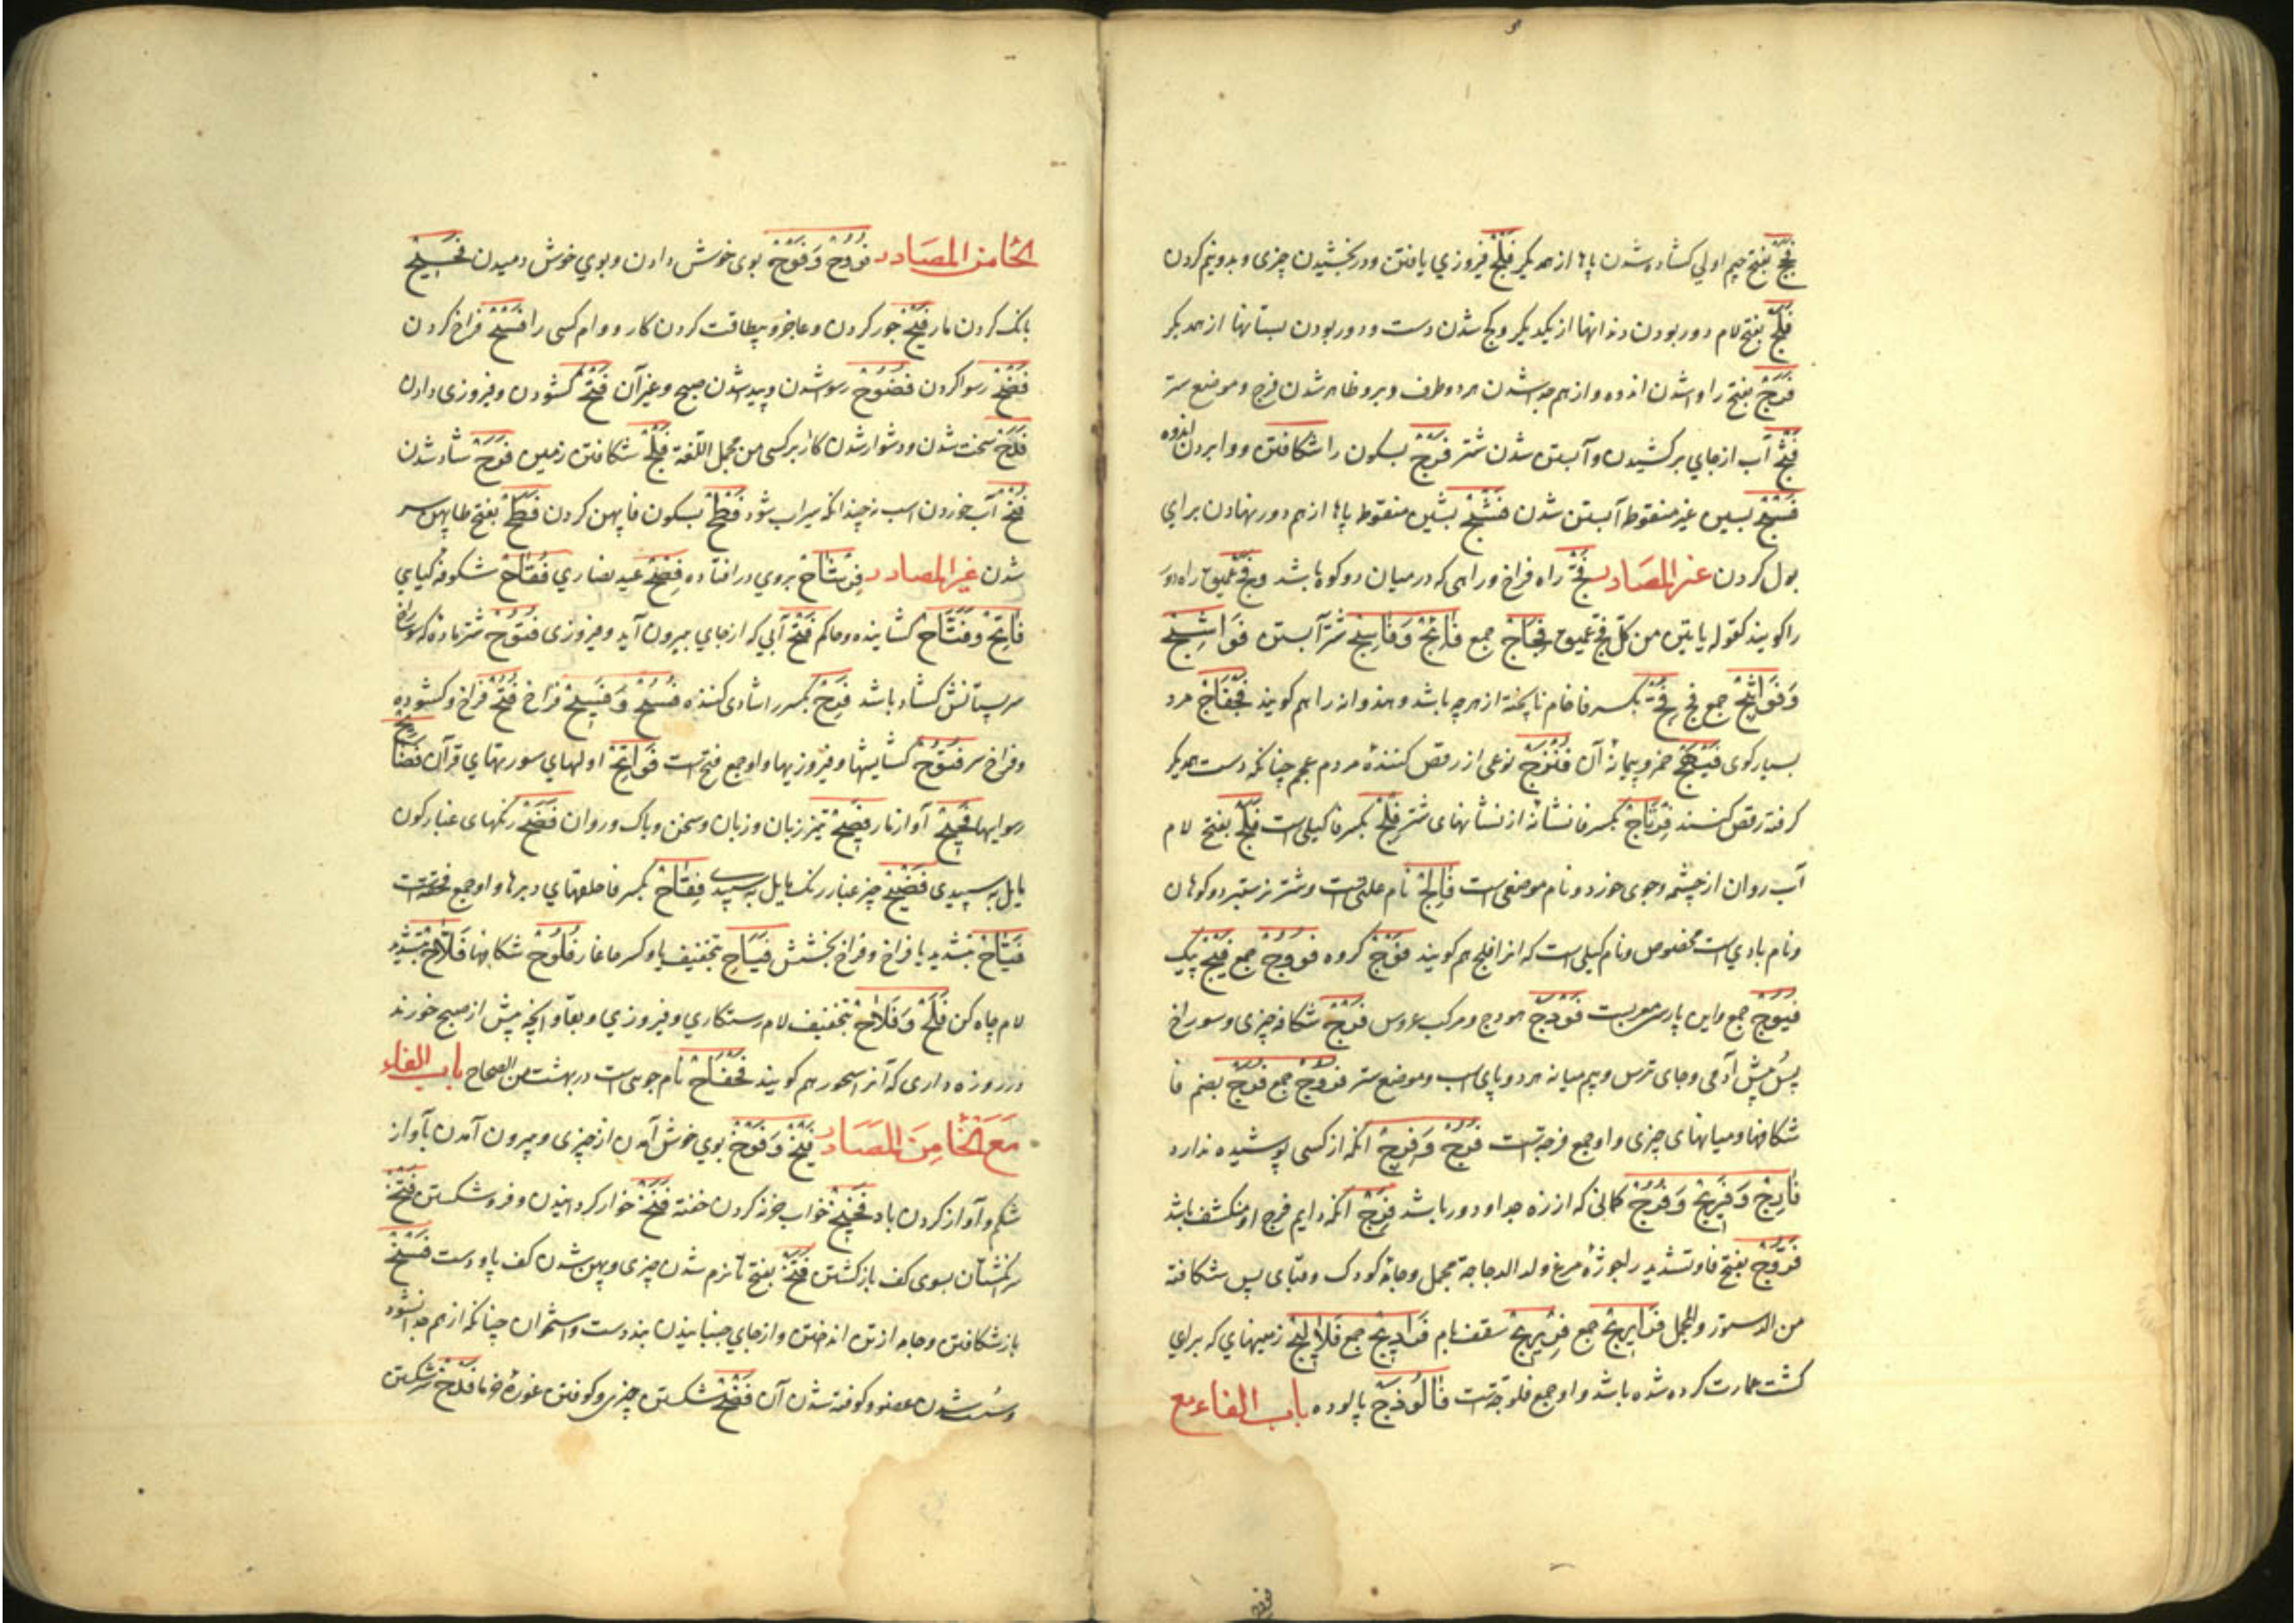 فَجَجْ بفتح جیم اولي کشاده شدن پاها از همدیکر فَلْجْ فیروزي یافتن و در بخشیدن چیزی و بدو نیم کردن
فَلَجْ بفتح لام دور بودن دندانها از یکدیکر و کج شدن دست و دور بودن پستانها از همدیکر
فَرَجْ بفتح را وا شدن اندوه و از هم جدا شدن هر دو طرف و برو ظاهر شدن فرج و موضع ستر
آب از جاي برکشیدن و آبستن شدن شتر فَرْجْ بسکون را شکافتن و وا بردن اندوه
فَسْجْ بسین غیر منقوط آبستن شدن فَشْجْ بشین منقوط پاها از هم دور نهادن براي
بول کردن غیر المصادر فَجّ راه فراخ و راهی که در میان دو کوه باشد و فج عمیق راه دور
را کویند کقوله یاتین من کل فج عمیق فِجَاجْ جمع فَاثِجْ وَفَاسِجْ شتر آبستن فَوَاسِجْ
وَفَوَاثِجْ جمع فِجّ بکسر فا خام ناپخته از هر چه باشد و هندوانه را هم کویند فَجْفَاجْ مرد
بسیار کوی فَیْهَجْ خمر و پیمانهٔ آن فَنْزَجْ نوعی از رقص کنندهٔ مردم عجم چنانکه دست همدیکر
کرفته رقص کنند فِرْتَاجْ بکسر فا نشانهٔ از نشانهای شتر فِلْجْ بکسر فا کیلی است فَلَجْ بفتح لام
آب روان از چشمه و جوی خورد و نام موضعی است فَالِجْ نام علتی است و شتر نر ستبر دو کوهان
و نام بادي است مخصوص و نام کیلی است که انرا فلج هم کویند فَوْجْ کروه فُوُوجْ جمع فَیْجْ پیک
فُیُوجْ جمع و این پارسی معربست فَوْدَجْ هودج و مرکب عروس فَرْجْ شکاف چیزی و سوراخ
پس پیش آدمی و جای ترس و بیم میانه هر دو پای اسب و موضع ستر فُرُوجْ جمع فُرَجْ بضم فا
شکافها و میانهای چیزی و او جمع فرجه است فُرُجْ وَفِرْجْ آنکه از کسی پوشیده ندارد
فَارِجْ وَفَرِیجْ وَفُرُجْ کمانی که از زه جدا و دور باشد فَرِجْ آنکه دایم فرج او منکشف باشد
فَرُّوجْ بفتح فا و تشدید را جوژهٔ مرغ ولد الدجاجة مجمل و جامهٔ کودک و قبای پس شکافته
من الدستور و المجمل فَرَارِیجْ جمع سقف بام جمع فَلَالِیجْ زمینهای که برای
کشت عمارت کرده شده باشد و او جمع فلوجه است فَالُوذَجْ پالوده باب الفاء مع
الحا من المصادر فَوْحْ بوی خوش دادن و بوي خوش دمیدن فَحِیحْ
بانک کردن مار جور کردن و عاجز و بیطاقت کردن کار و وام کسی را فَسْحْ فراخ کردن
فَضْحْ رسوا کردن فُضُوحْ رسوا شدن و پیدا شدن صبح و غیر آن فَتْحْ کشودن و فیروزی دادن
سخت شدن و دشوار شدن کار بر کسی من مجمل اللغة فَلْحْ شکافتن زمین فَرَحْ شاد شدن
آب خوردن اسب نه چندانکه سیراب شود فَطْحْ بسکون فا پهن کردن فَطَحْ بفتح طا پهن سر
شدن غیر المصادر فِرْشَاحْ بروي در افتاده فِصْحْ عید نصاري فُقَّاحْ شکوفه کیاهي
فَاتِحْ وَفَتَّاحْ کشاینده و حاکم فَتْحْ آبی که از جاي بیرون آید و فیروزی فَتُوحْ شتر ماده که سوراخ
سر پستانش کشاد باشد فَرِحْ بکسر را شادی کننده فُسُحْ وَفَسِیحْ فراخ فُتُحْ فراخ و کشوده
و فراخ سر فُتُوحْ کشایشها و فیروزیها و او جمع فتح است فَوَاتِحْ اولهاي سورتهاي قرآن فَضَایِحْ
رسوایها فَحِیحْ آواز مار فَصِیحْ تیز زبان و زبان و سخن و پاک و روان فَضَحْ رنکهای غبار کون
مایل به سپیدی فَضِیحْ چیز غبار رنک مایل به سپیدی فِقَاحْ بکسر فا حلقهاي دبرها و او جمع فقحه است
فَیَّاحْ بتشدید یا فراخ و فراخ بخشش فَیَاحِ بتخفیف یا و کسر حا غار فُلُوحْ شکافها فَلَّاحْ بتشدید
لام چاه کن فَلَحْ وَفَلَاحْ بتخفیف لام رستکاری و فیروزي و بقا و آنچه پیش از صبح خورند
در روزه داری که آنرا سحور هم کویند فَحْفَاحْ نام جوی است در بهشت من الصحاح باب الفاء
مَعَ الْخَا مِنَ الْمَصَادِرْ فَیْخْ وَفَوْخْ بوي خوش آمدن از چیزی و بیرون آمدن بآواز
شکم و آواز کردن باد فَخِیخْ خواب خرنه کردن خفته فَنْخْ خوار کردانیدن و فرو شکستن فَتْخْ
سر انکشتان بسوی کف باز کشتن فَتَخْ بفتح تا نرم شدن چیزی و پهن شدن کف پا و دست فَسْخْ
باز شکافتن و جامه از تن انداختن و از جاي جنبانیدن بند دست و استخوان چنانکه از هم جدا نشود
و سست شدن عضو و کوفته شدن آن فَضْخْ شکستن چیزی و کوفتن غورهٔ خرما سر شکستن